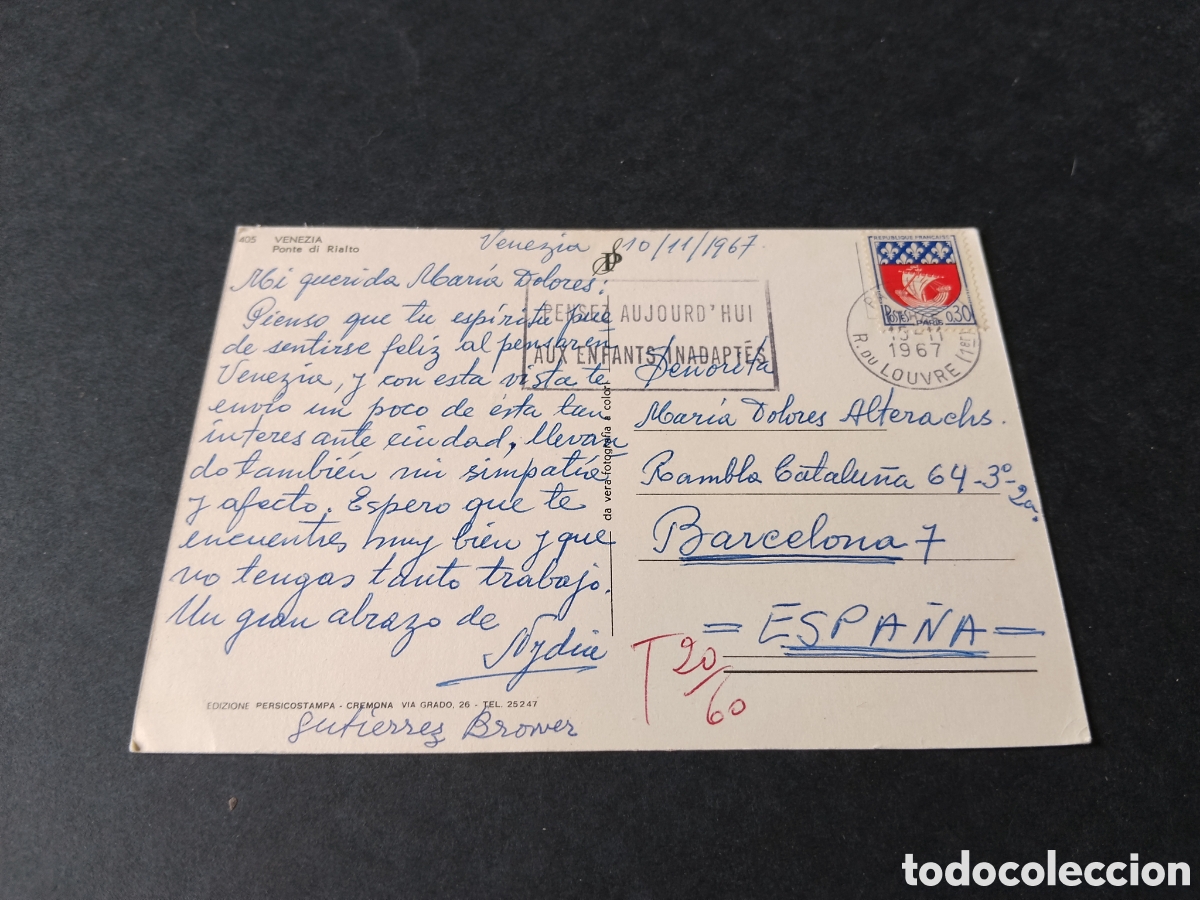 405 VENEZIA
Ponte di Rialto
Venezia 10/11/1967.
Mi querida María Dolores:
Pienso que tu espíritu pue
de sentirse feliz al pensar en
Venezia, y con esta vista te
envío un poco de ésta tan
interesante ciudad, llevan
do también mi simpatía
y afecto. Espero que te
encuentres muy bien y que
no tengas tanto trabajo.
Un gran abrazo de
Nydia
EDIZIONE PERSICOSTAMPA - CREMONA VIA GRADO, 26 - TEL. 25247
Gutierrez Brower
da vera fotografia a colori
PENSEZ AUJOURD'HUI
AUX ENFANTS INADAPTÉS
REPUBLIQUE FRANÇAISE
POSTES 0,30
PARIS
15-11
1967
R. DU LOUVRE (1er)
Señorita
María Dolores Alterachs.
Rambla Cataluña 64-3º-2a.
Barcelona 7
= ESPAÑA =
T 20/60
todocoleccion